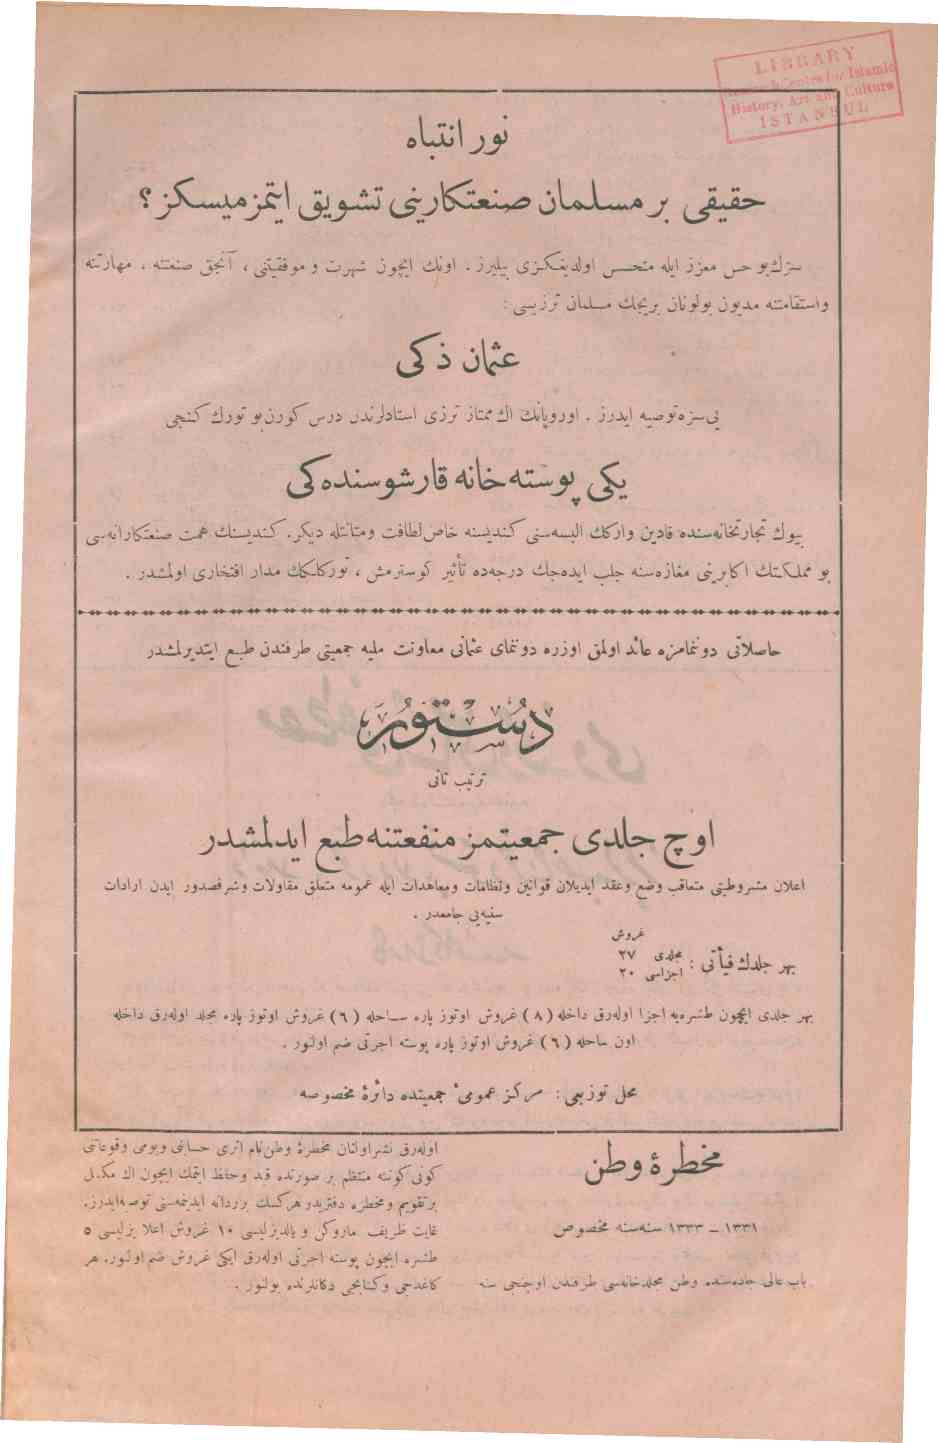 LIBRARY
Research Centre for Islamic
History, Art and Culture
ISTANBUL
نور انتباه
حقیقی بر مسلمان صنعتکارینی تشویق ایتمزمیسکز؟
سزك بو حس معزز ایله متحسس اولدیغکزی بیلیرز . اونك ایچون شهرت و موفقیتنی ، آنجق صنعتنه ، مهارتنه
واستقامتنه مدیون بولونان بریجك مسلمان ترزیسی :
عثمان ذکی
بی سزه توصیه ایدرز . اوروپانك اك ممتاز ترزی استادلرندن درس کورن بو تورك کنجی
یکی پوسته خانه قارشوسنده کی
بیوك تجارتخانه سنده قادین وارکك البسه سنی کندیسنه خاص لطافت ومتانتله دیکر. کندیسنك همت صنعتکارانه سی
بو مملکتك اکابرینی مغازه سنه جلب ایده جك درجه ده تأثیر کوسترمش ، تورکلکك مدار افتخاری اولمشدر .
حاصلاتی دوننمامزه عائد اولمق اوزره دوننمای عثمانی معاونت ملیه جمعیتی طرفندن طبع ایتدیرلمشدر
دستور
ترتیب ثانی
اوچ جلدی جمعیتمز منفعتنه طبع ایدلمشدر
اعلان مشروطیتی متعاقب وضع وعقد ایدیلان قوانین ونظامات ومعاهدات ایله عمومه متعلق مقاولات وشرفصدور ایدن ارادات
سنیه یی جامعدر .
غروش
بهر جلدك فیأتی : مجلدی ۲۷
اجزاسی ۲۰
بهر جلدی ایچون طشره یه اجزا اوله رق داخله (۸) غروش اوتوز پاره ساحله (٦) غروش اوتوز پاره مجلد اوله رق داخله
اون ساحله (٦) غروش اوتوز پاره پوسته اجرتی ضم اولنور .
محل توزیعی : مرکز عمومیٔ جمعیتده دائرهٔ مخصوصه
مخطرهٔ وطن
۱۳۳۱ – ۱۳۳۳ سنه سنه مخصوص
باب عالی جاده سنده وطن مجلدخانه سی طرفندن اوچنجی سنه
اوله رق نشر اولنان مخطرهٔ وطن نام اثری حسابی ویومی وقوعاتی
کونی کوننه منتظم بر صورتده قید وحفظ ایتمك ایچون اك مکمل
بر تقویم ومخطره دفتریدر هرکسك بر دانه ایدنمه سنی توصیه ایدرز.
غایت ظریف ماروکن و یالدیزلیسی ۱۰ غروش اعلا بزلیسی ٥
طشره ایچون پوسته اجرتی اوله رق ایکی غروش ضم اولنور. هر
کاغدجی وکتابجی دکانلرنده بولنور .